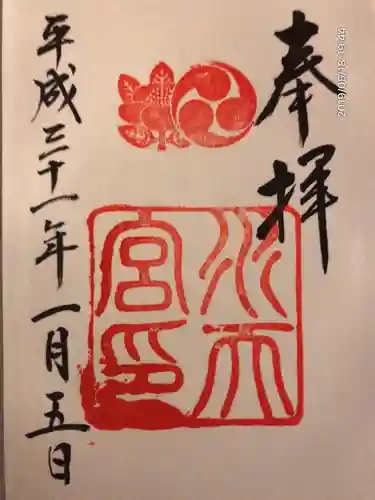 奉拝
水天
宮印
平成三十一年一月五日
2019/05/18 19:44